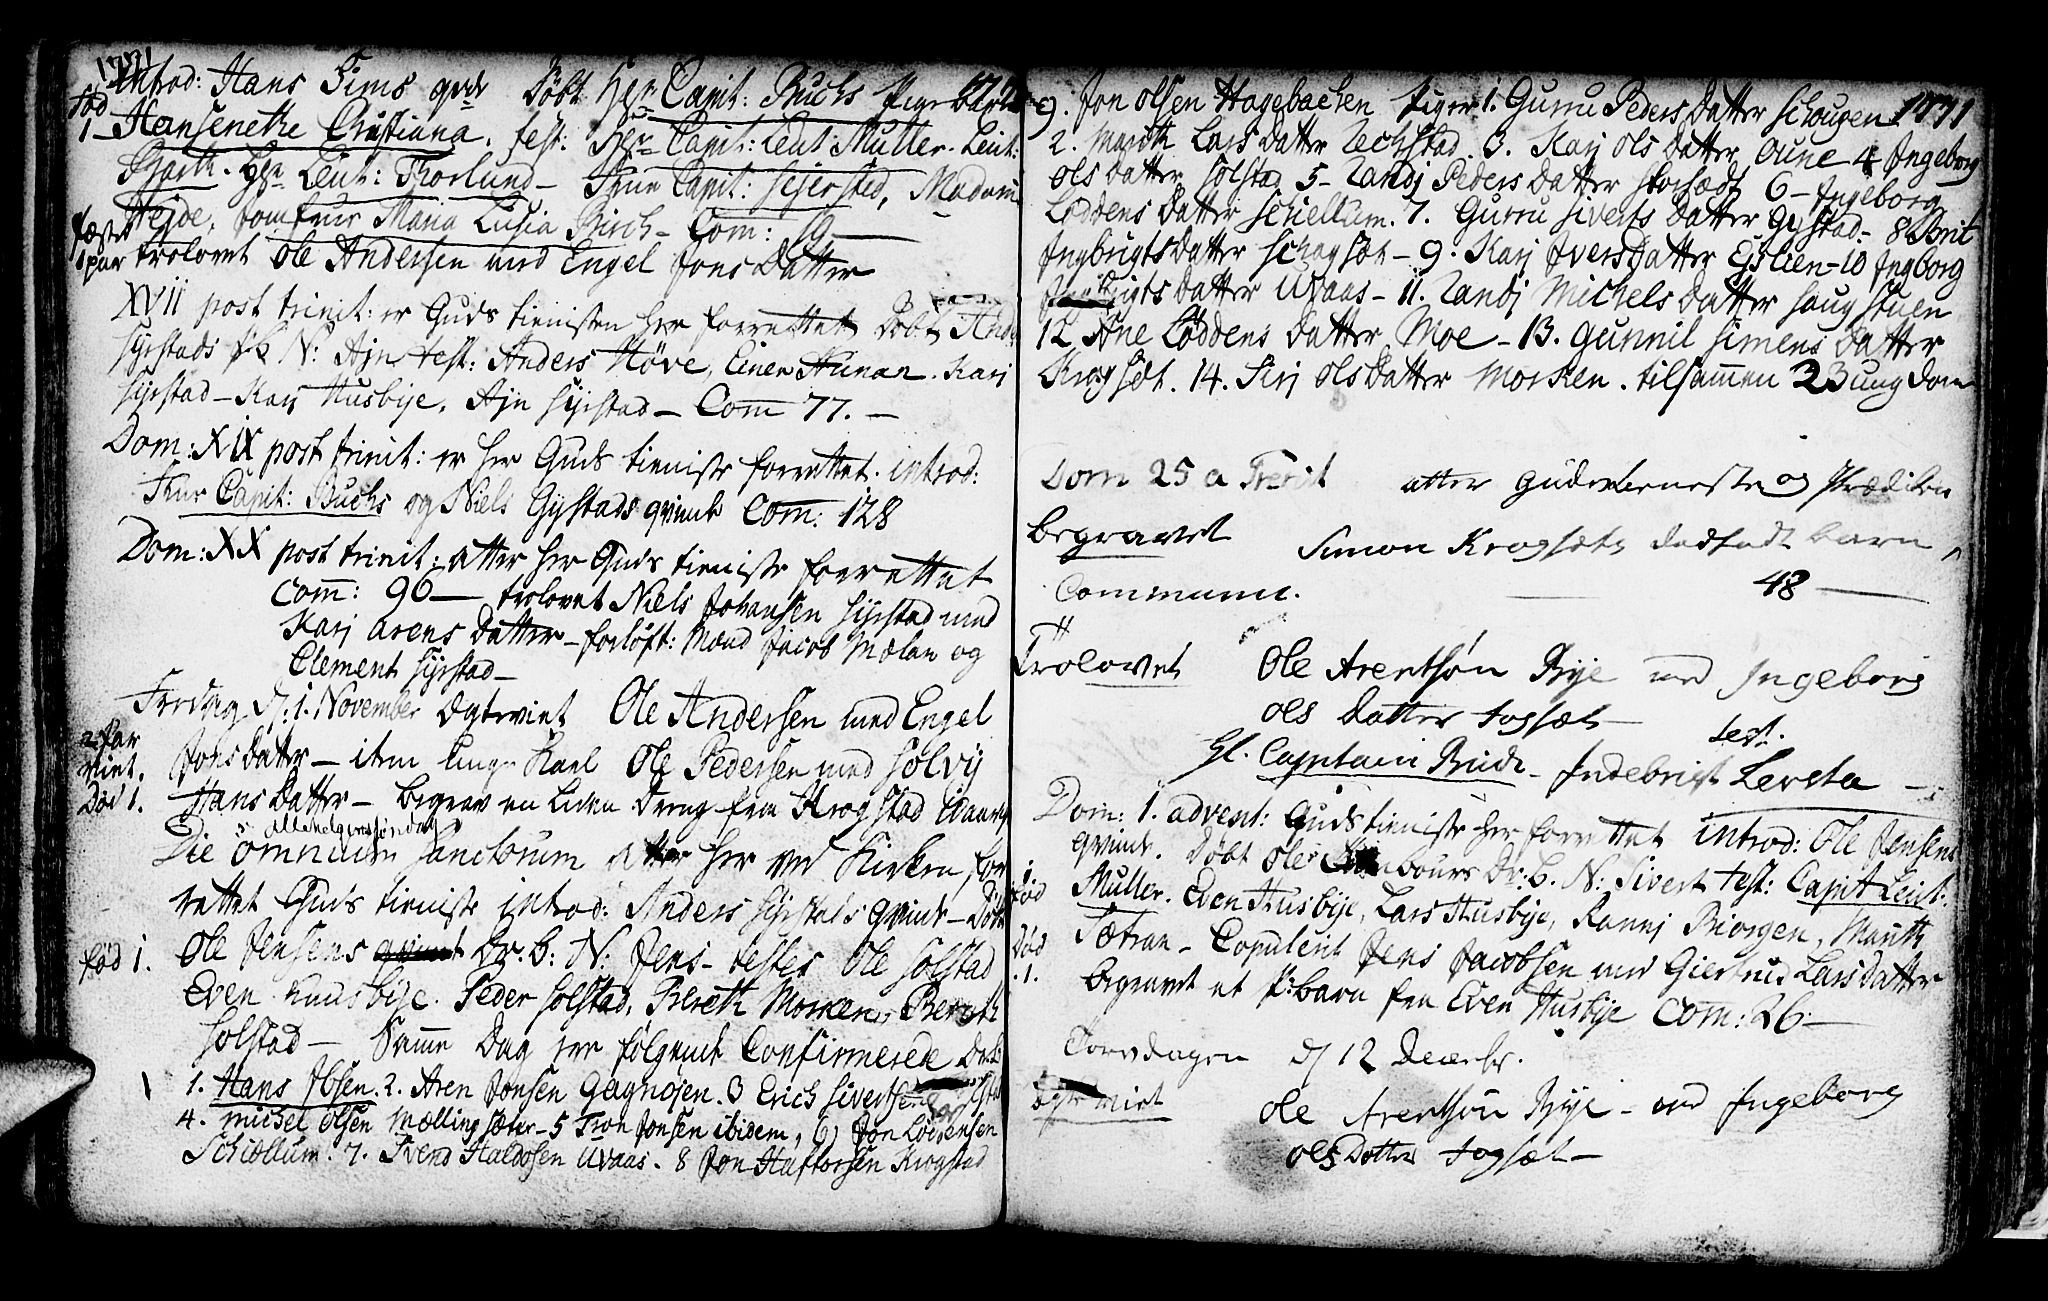 1771
introd: Hans Fims qvi Døbt Hr Capit: Buchs Pige barn
fød 1 Hansenethe Christiana. test: Hr Capit: Leut: Muller. Leut:
Hr Leut: Thorlund - Frue Capit: Sejersted, Madame
Heyde, Jomfrue Maria Lucia Birch - Com: 19 -
1 par trolovet Ole Andersen med Engel Jons Datter
XVII post trinit: er Guds tieniste her forrettet Døbt
Syrstads N: Ajn test: Anders Høve, Einer Hunan. Karj
Syrstad - Karj Husbye, Ajn Syrstad - Com 77. -
Dom: XIX post trinit: er her Guds tieniste forrettet. introd:
Frue Capit: Buchs og Niels Gystads qvinde Com: 128
Dom: XX post trinit: atter her Guds tieniste forrettet
Com: 96 - trolovet Niels Johansen Syrstad med
Karj Arens Datter - forløft: Mænd Jacob Mælan og
Clement Syrstad -
Fredag d: 1. November Ægteviet Ole Andersen med Engel
2 par viet. Jons datter - item unge Karl Ole Pedersen med Solvy
Død 1. Hans Datter - begrav en liden Dreng fra Krogstad
Allehelgens søndag
Die omnium Sanctorum atter her ved Kirken for
rettet Guds tieniste introd: Anders Syrstads qvinde - Døbt
fød 1. Ole Jensens Dr. b: N: Jens - testes Ole Solstad
Even Huusbye. Peder Solstad, Bereth Morken, Bereth
Solstad - Samme Dag er følgende Confirmerede
1. Hans Ibsen. 2. Aren Jonsen Gagnosen. 3 Erich Sivertsen
4. Michel Olsen Mællingsæter - 5 Tron Jonsen ibidem, 6) Jon Loddensen
Schiellum. 7. Svend Haldosen Uvaas - 8 Jon Haftorsen Krogstad
9. Jon Olsen Hagebachen Piger 1. Gurru Peders Datter Schougen 1771
2. Marith Lars Datter Techstad. 3. Karj Ols Datter Aune 4 Ingeborg
Ols Datter Solstad 5 - Randj Peders Datter 6 - Ingeborg
Loddens Datter Schiellum. 7. Gurru Siverts Datter Gystad - 8 Brit
Ingbrigts Datter - 9. Karj Ivers Datter Eslien - 10 Ingborg
Datter Uvaas - 11. Randj Michels Datter Haugstuen
12 Ane Loddens Datter Moe - 13. Gunnil Simens Datter
Krogsæt. 14. Sirj Ols Datter Morken. tilsammen 23 ungdom
Dom 25 a Trenit atter gudstieneste og Prædiken
begravet Simon Krogsæts dødfødt barn
Communic. 48 -
Trolovet Ole Arentsøn Rye med Ingeborg
Ols Datter Fogsæt -
test.
Hl. Capitain Buch - Indebrigt Levsta -
Dom: 1. advent: Guds tieniste her forrettet introd: Ole Jensens
qvinde. Døbt Ole Dr. b. N: Sivert test: Capit Leut:
1. fød Muller. Even Husbye, Lars Husbye, Rannj Biorgen, Marith
Død 1. Sætran - Copuleret Jens Jacobsen med Giertrud Lars datter
begravet et P: barn fra Even Husbye Com: 26 -
Torsdagen d 12 Decembr.
Ægte viet Ole Arentsøn Rye - med Ingeborg
Ols Datter Fogsæt -